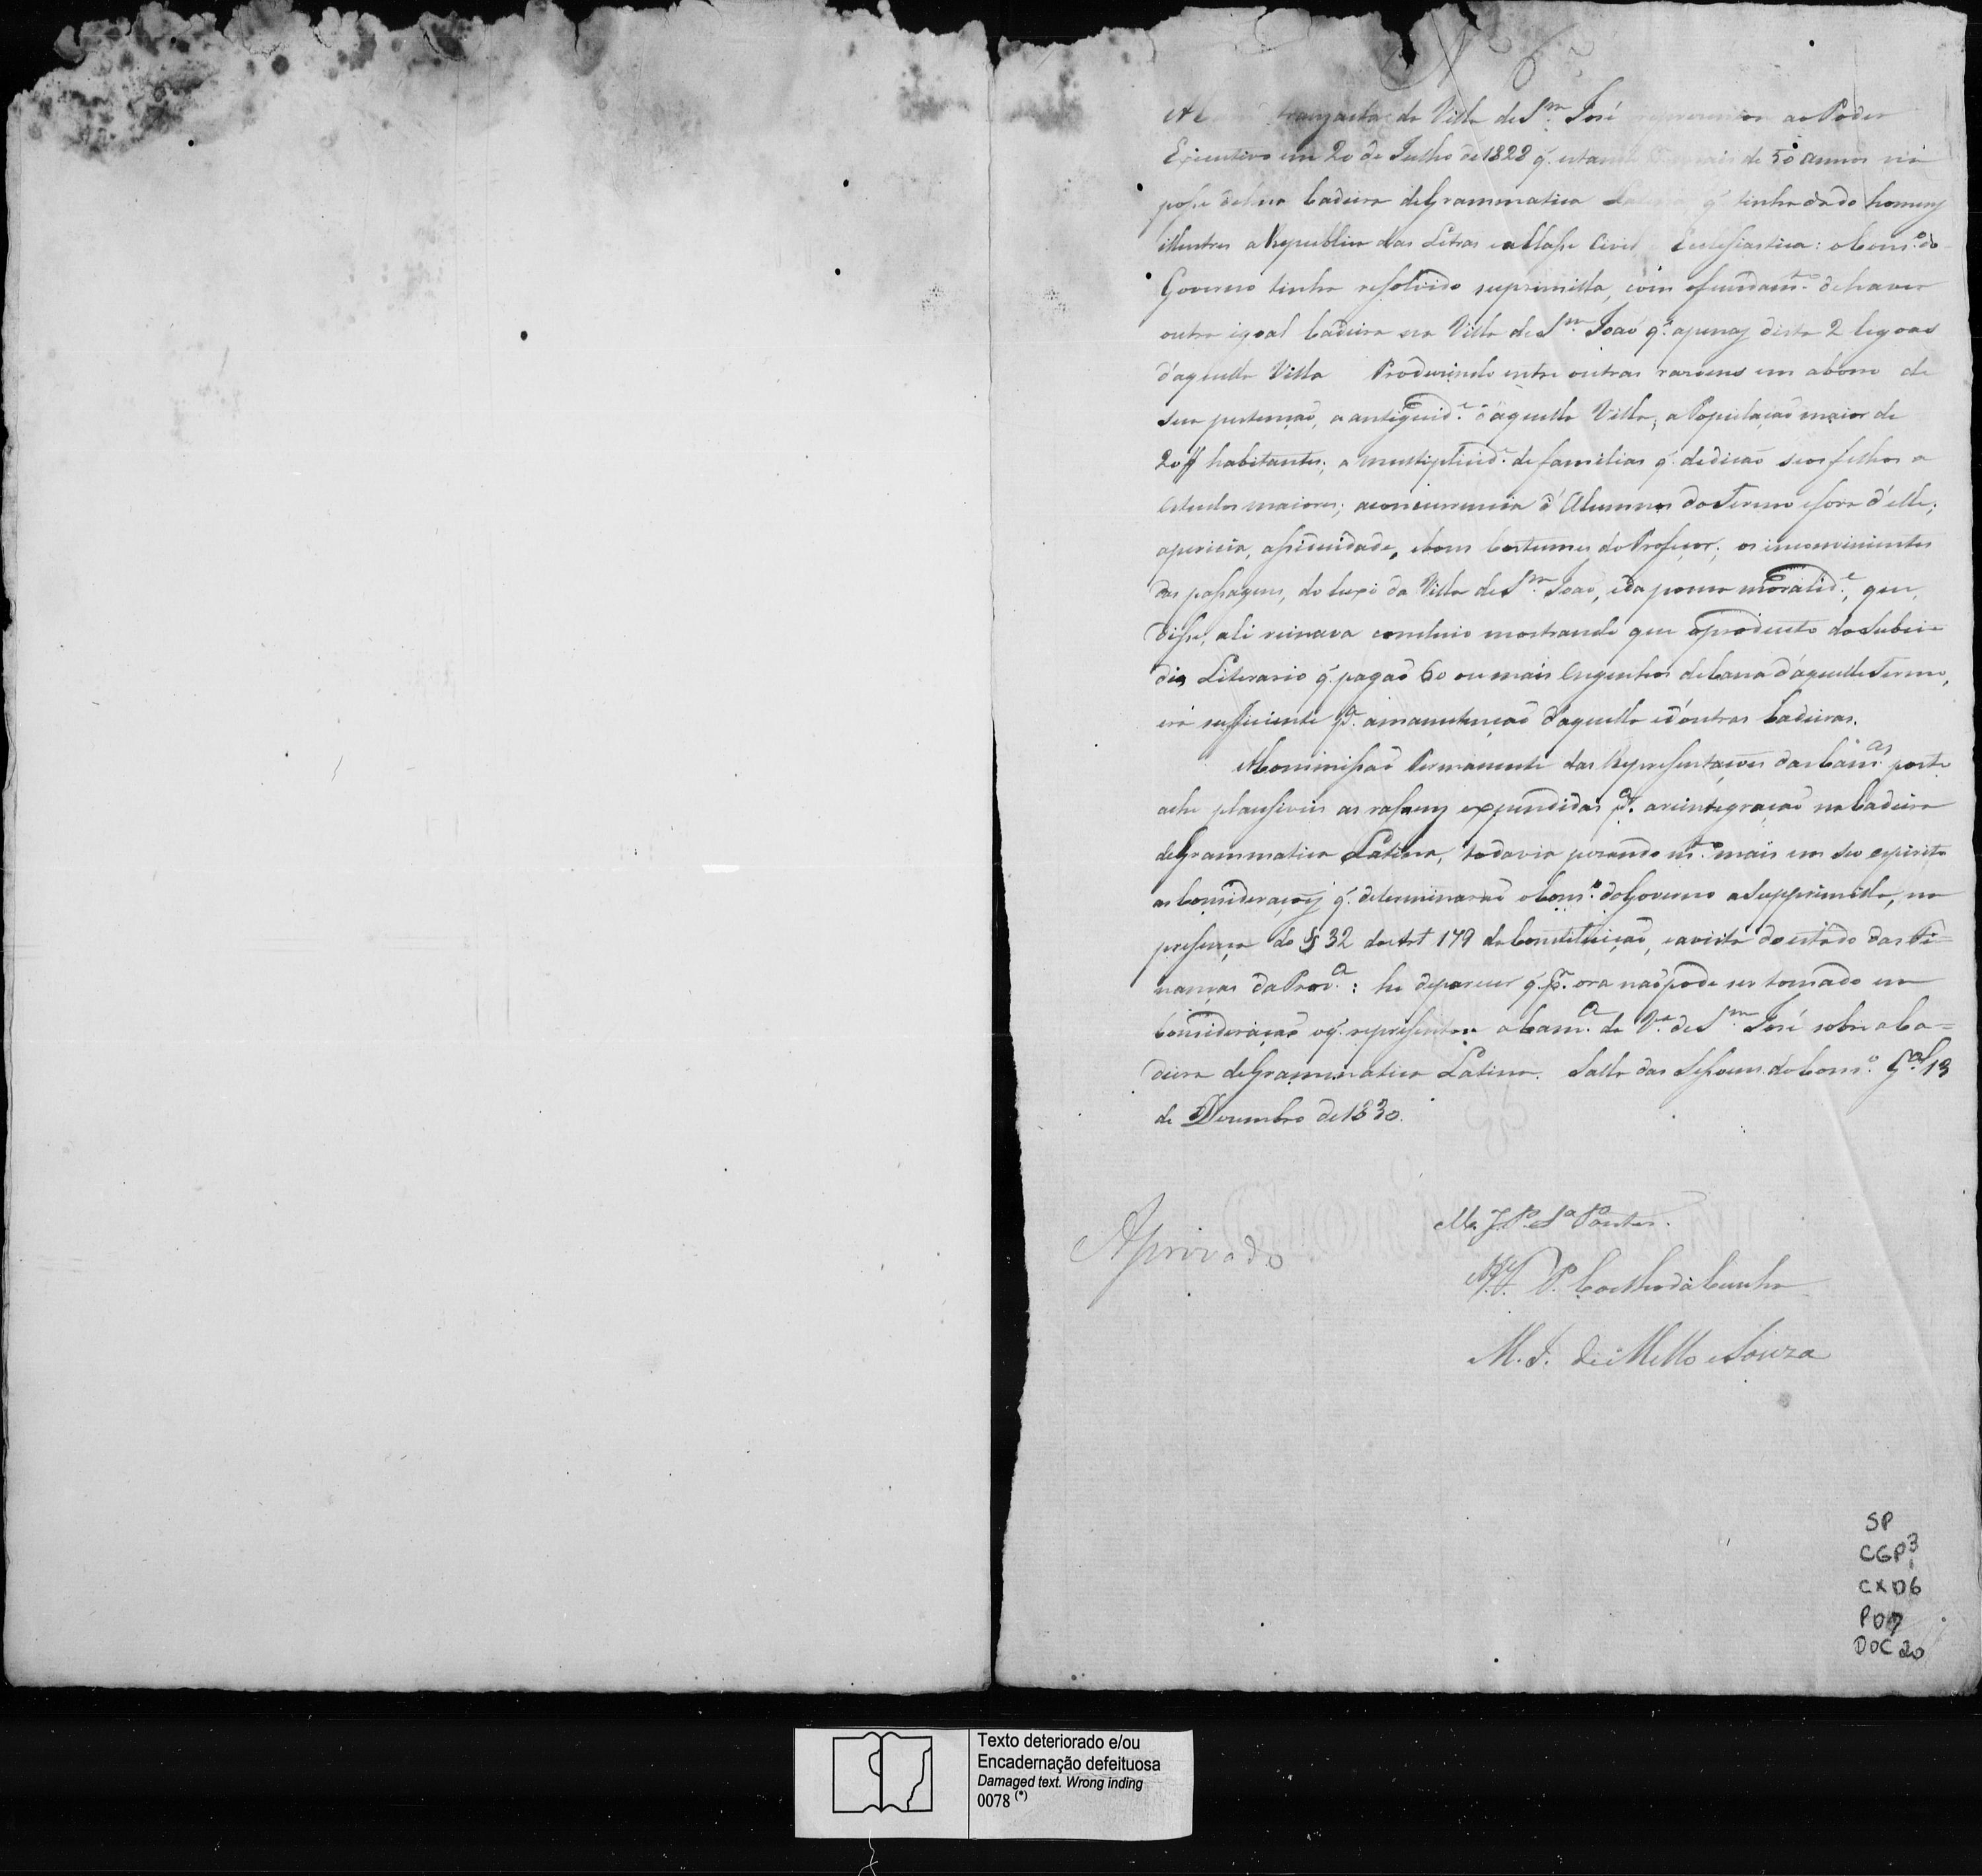 N.º 6.º
A transacta da Villa de S.m José representou ao Poder
Executivo em 20 de Julho de 1828 q. estando mais de 50 annos na
posse de hua Cadeira de Grammatica Latina q. tinha dado homens
illustres a Republica das Letras e a Classe Civil e Eclesiastica: o Cons.º do
Governo tinha resolvido suprimilla, com o fundam.to de haver
outra igoal Cadeira na Villa de S.m João q. apenas dista 2 legoas
d'aquella Villa Produzindo entre outras razoens em abono de
sua pertenção, a antiguid.e d'aquella Villa; a População maior de
20 habitantes; a multiplicid.e de familias q. dedicão seos filhos a
estudos maiores; a concurrencia d'Alumnos do Termo e fora d'elle;
a pericia, assiduidade, e bons Costumes do Professor; os inconvinientes
das passagens, do luxo da Villa de S.m João, e da pouca moralid.e, que,
disse, ali reinava concluio mostrando que o producto do Subci=
dio Literario q. pagão 60 ou mais Engenhos de Cana d'aquelle Termo,
era sufficiente p.a a manutenção d'aquella e d'outras Cadeiras.
A Commissão Permanente das Representações das Cam.as posto
ache plausiveis as rasoens expendidas p.a a reintegração na Cadeira
de Grammatica Latina, todavia pezando m.to mais em seo espirito
as Consideraçoens q. determinarão o Cons.º do Governo a Supprimilla, na
presença do § 32 do Art 179 da Constituição, e a vista do estado das Fi=
nanças da Prov.a: he de parecer q. p.r ora não pode ser tomado em
Consideração o q. representou a Cam.a da V.a de S.m José sobre a Ca=
deira de Grammatica Latina. Salla das Sessoens do Cons.º G.al 13
de Dezembro de 1830.
Aprovado
M. J. P. S.a Pontes.
P. Coelho da Cunha
M. I. de Mello e Souza
SP
CGP3
CX 06
P 07
DOC 20
Texto deteriorado e/ou
Encadernação defeituosa
Damaged text. Wrong inding
0078 (*)